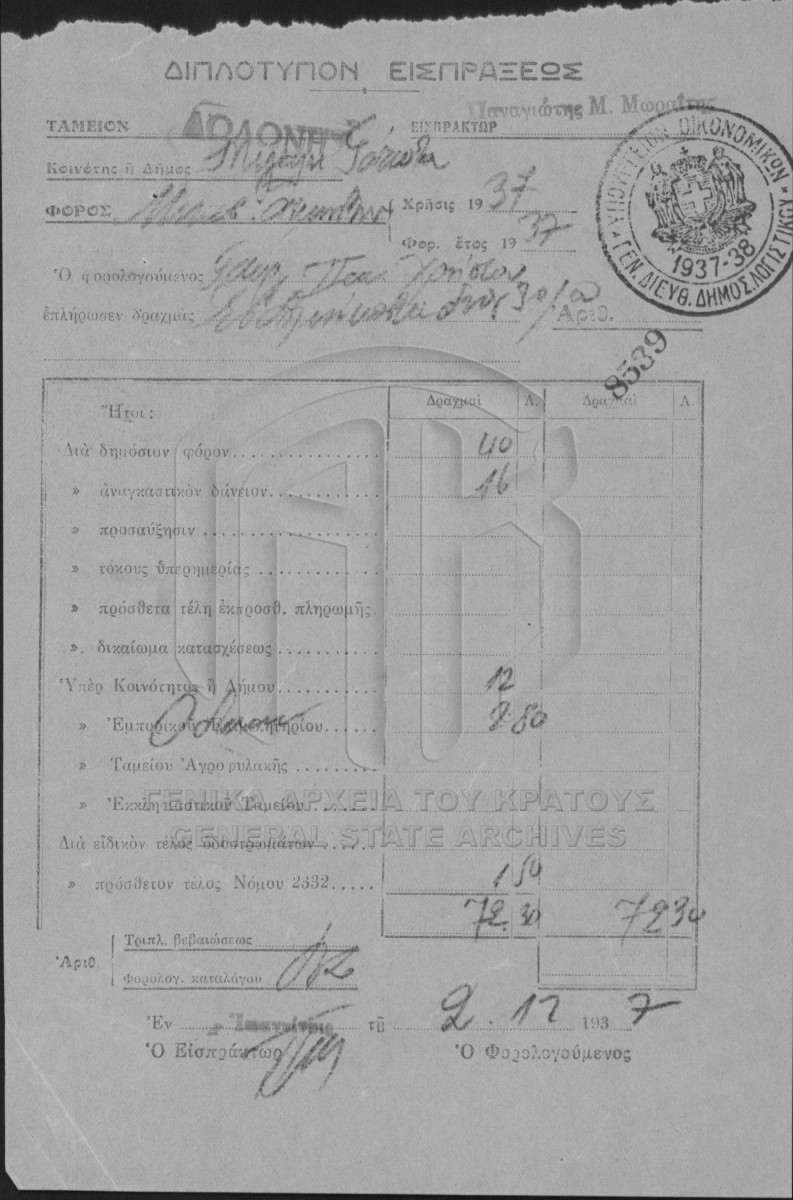 ΔΙΠΛΟΤΥΠΟΝ ΕΙΣΠΡΑΞΕΩΣ
Παναγιώτης Μ. Μωραΐτης
ΤΑΜΕΙΟΝ ΔΩΔΩΝΗΣ ΕΙΣΠΡΑΚΤΩΡ
Κοινότης ἢ Δῆμος
ΦΟΡΟΣ Χρῆσις 1937
Φορ. ἔτος 1937
ΥΠΟΥΡΓΕΙΟΝ ΟΙΚΟΝΟΜΙΚΩΝ
ΓΕΝ. ΔΙΕΥΘ. ΔΗΜΟΣ. ΛΟΓΙΣΤΙΚΟΥ
1937-38
Ὁ φορολογούμενος
ἐπλήρωσεν δραχμὰς 30/00 Ἀριθ.
8539
Ἤτοι: Δραχμαὶ Λ. Δραχμαὶ Λ.
Διὰ δημόσιον φόρον 40
» ἀναγκαστικὸν δάνειον 16
» προσαύξησιν
» τόκους ὑπερημερίας
» πρόσθετα τέλη ἐκπροσθ. πληρωμῆς
» δικαίωμα κατασχέσεως
Ὑπὲρ Κοινότητος ἢ Δήμου 12
» Ἐμπορικοῦ Ἐπιμελητηρίου 2 80
» Ταμείου Ἀγροφυλακῆς
» Ἐκκλησιαστικοῦ Ταμείου
ΓΕΝΙΚΑ ΑΡΧΕΙΑ ΤΟΥ ΚΡΑΤΟΥΣ
GENERAL STATE ARCHIVES
Διὰ εἰδικὸν τέλος ὁδοστρωμάτων
» πρόσθετον τέλος Νόμου 2332 1 50
72 30 72 30
Τριπλ. βεβαιώσεως
Ἀριθ.
Φορολογ. καταλόγου
Ἐν Ἰωαννίνοις τῇ 2.12 1937
Ὁ Εἰσπράκτωρ Ὁ Φορολογούμενος